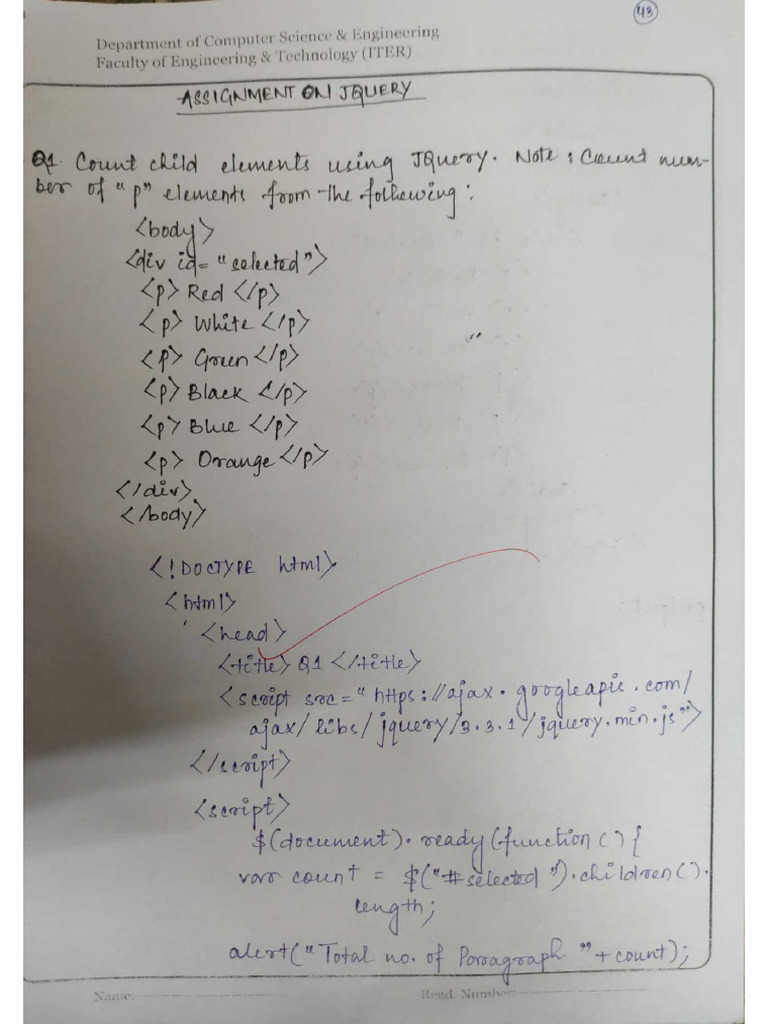 43
Department of Computer Science & Engineering
Faculty of Engineering & Technology (ITER)
ASSIGNMENT ON JQUERY
Q1. Count child elements using JQuery. Note : Count num-
ber of "p" elements from the following:
<body>
<div id= "selected">
<p> Red </p>
<p> White </p>
<p> Green </p>
<p> Black </p>
<p> Blue </p>
<p> Orange </p>
</div>
</body>
<!DOCTYPE html>
<html>
<head>
<title> Q1 </title>
<script src="https://ajax.googleapis.com/
ajax/libs/jquery/3.3.1/jquery.min.js">
</script>
<script>
$(document).ready(function () {
var count = $("#selected").children().
length;
alert("Total no. of Paragraph " + count);
Name:
Regd. Number: